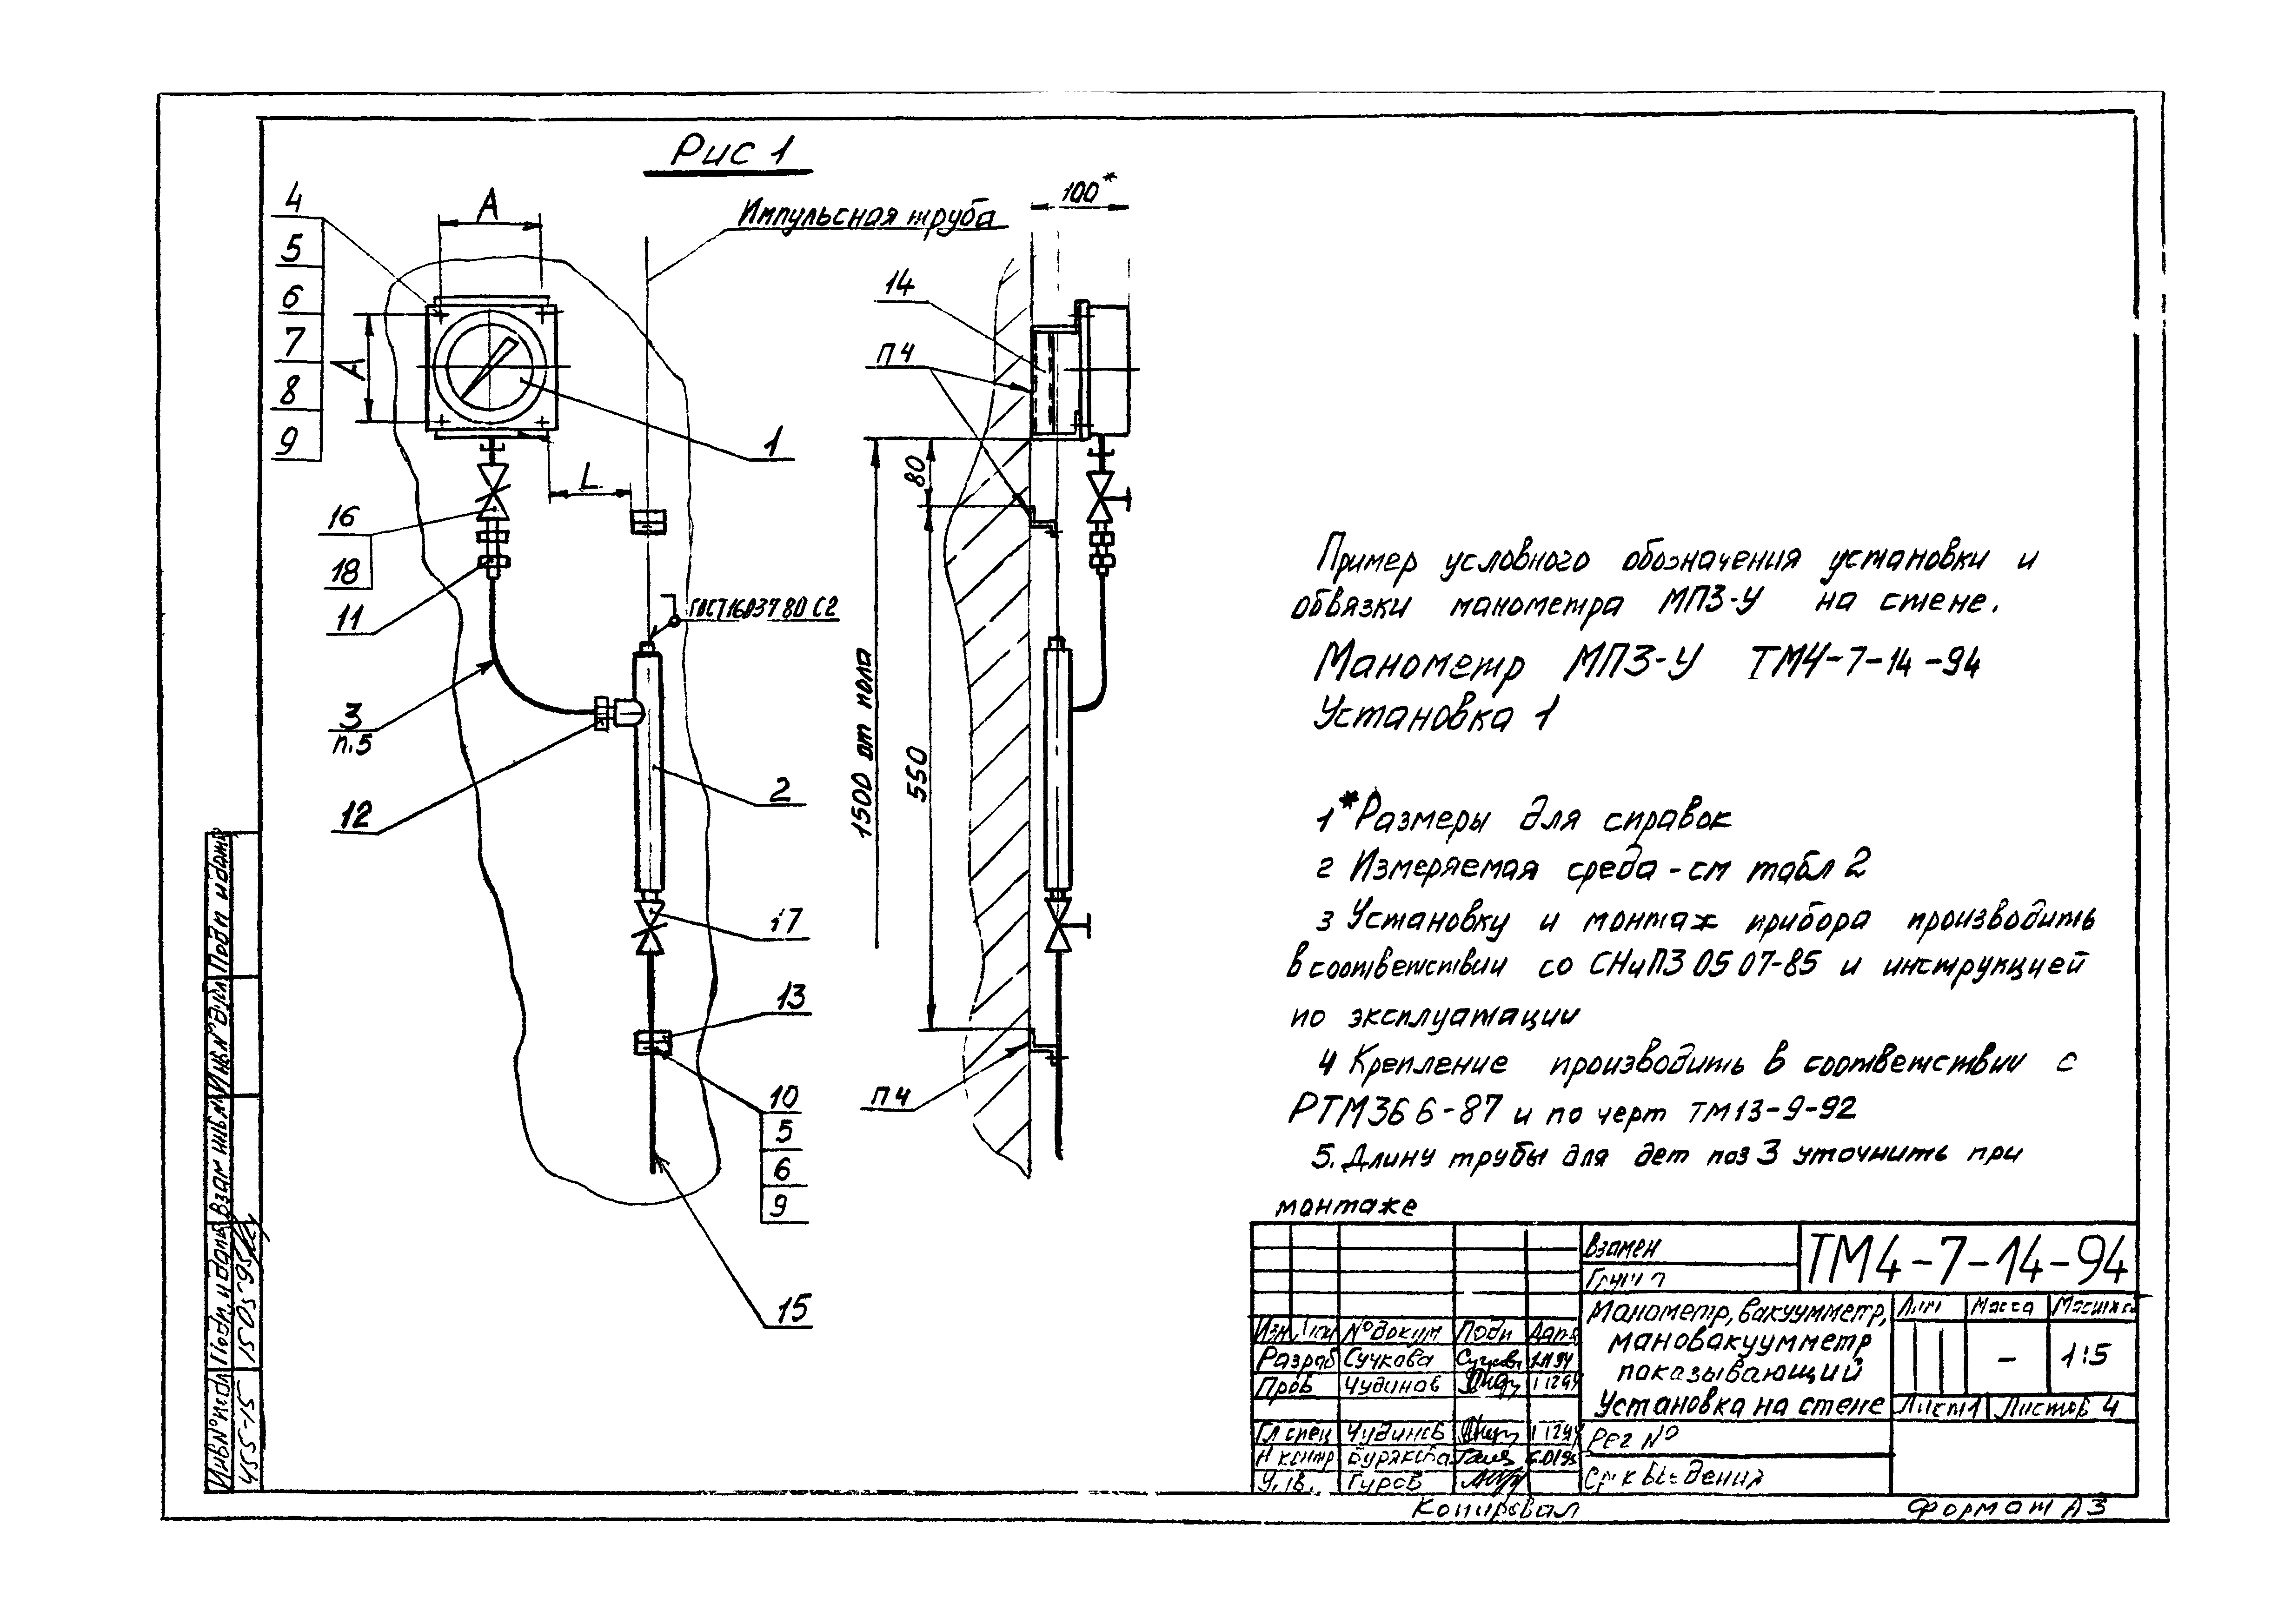 Рис 1
4
5
6
7
8
9
А
А
Импульсная труба
100*
14
П 4
1
L
80
16
18
11
ГОСТ16037 80 С2
3
п.5
12
2
1500 от пола
550
17
13
10
5
6
9
П 4
15
Пример условного обозначения установки и
обвязки манометра МП3-У на стене.
Манометр МП3-У ТМ4-7-14-94
Установка 1
1* Размеры для справок
2 Измеряемая среда - см табл 2
3 Установку и монтаж прибора производить
в соответствии со СНиП3 05 07-85 и инструкцией
по эксплуатации
4 Крепление производить в соответствии с
РТМ36 6-87 и по черт ТМ13-9-92
5. Длину трубы для дет поз 3 уточнить при
монтаже
Взамен
Групп
ТМ4-7-14-94
Манометр, вакуумметр,
мановакуумметр
показывающий
Установка на стене
Лит Масса Масштаб
– 1:5
Лист 1 Листов 4
Изм. Лист №докум Подп Дата
Разраб Сучкова
Пров Чудинов
Гл спец Чудинов
Н контр Бурякова
Утв. Гуров
Рег №
Срок введения
Копировал
Формат А3
Подп и дата
Инв№дубл
Взам инв№
Подп. и дата
15 05-95
Инв№подл
455-15